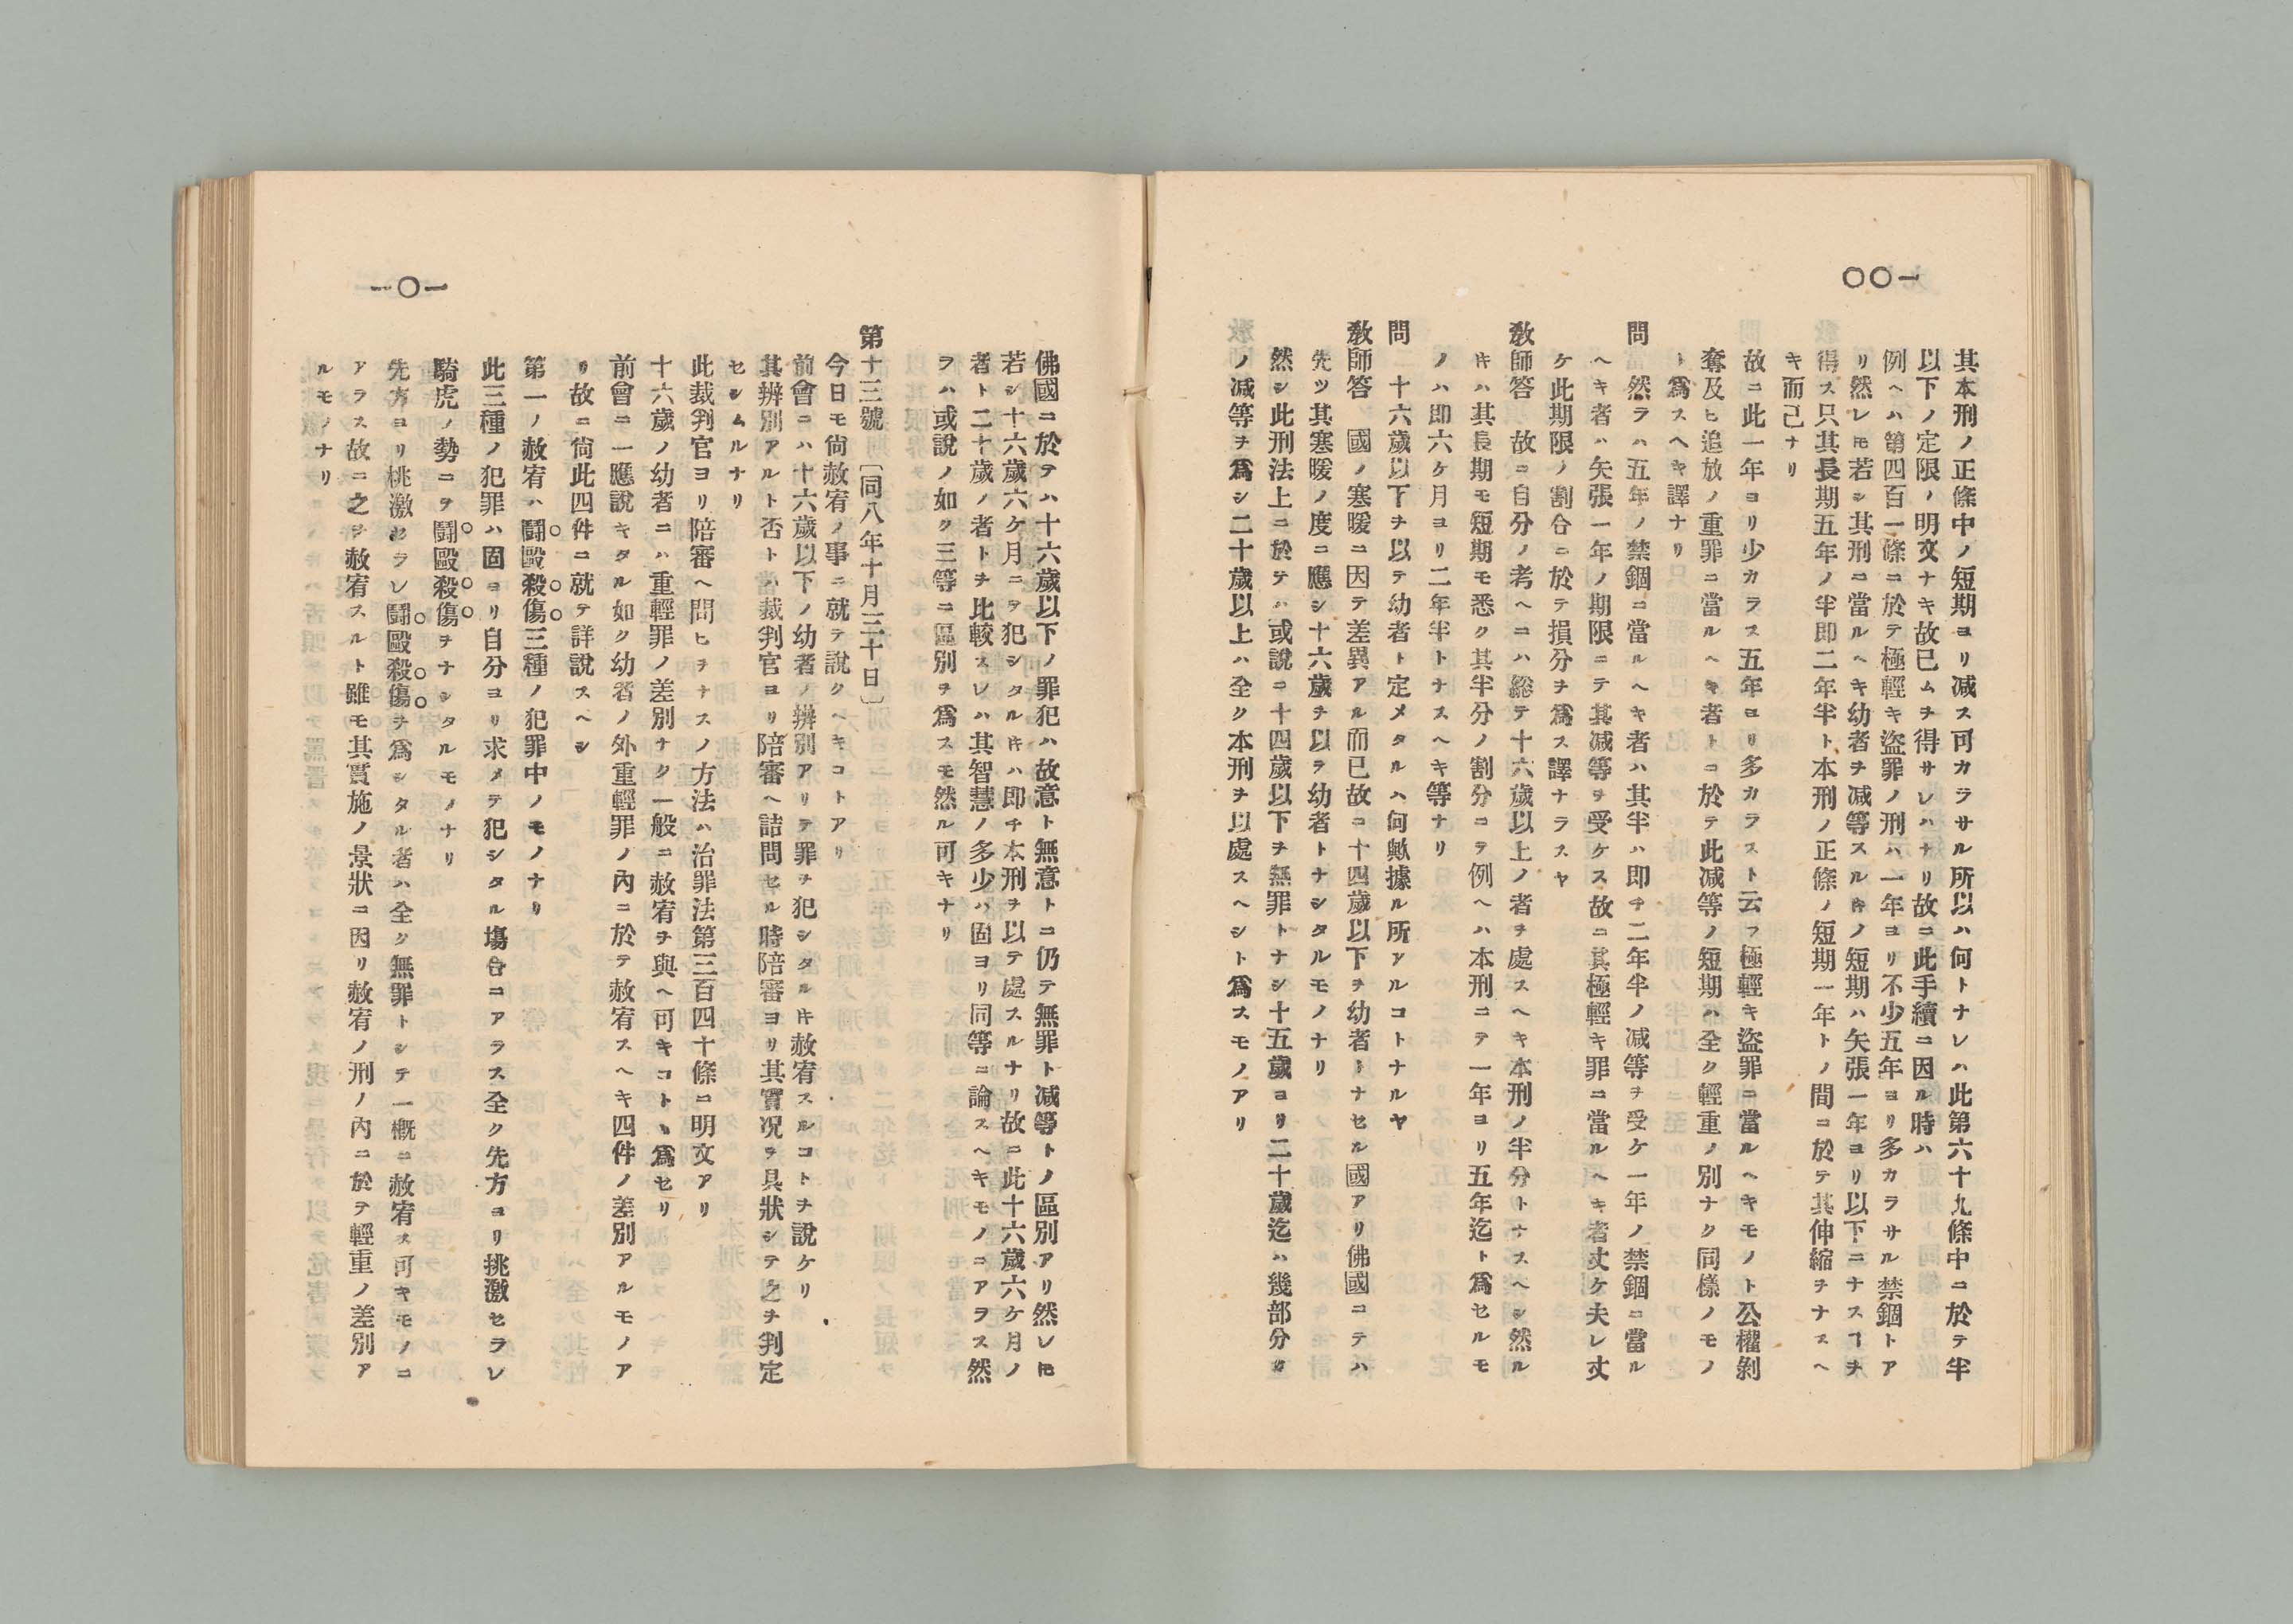 一〇〇
其本刑ノ正條中ノ短期ヨリ减ス可カラサル所以ハ何トナレハ此第六十九條中ニ於テ半
以下ノ定限ノ明文ナキ故已ムヲ得サレハナリ故ニ此手續ニ因ル時ハ
例ヘハ第四百一條ニ於テ極輕キ盜罪ノ刑ハ一年ヨリ不少五年ヨリ多カラサル禁錮トア
リ然レ𪜈若シ其刑ニ當ルヘキ幼者ヲ减等スル𪜈ノ短期ハ矢張一年ヨリ以下ニナスヿヲ
得ス只其長期五年ノ半即二年半ト本刑ノ正條ノ短期一年トノ間ニ於テ其伸縮ヲナスヘ
キ而己ナリ
故ニ此一年ヨリ少カラス五年ヨリ多カラスト云フ極輕キ盜罪ニ當ルヘキモノト公權剝
奪及ヒ追放ノ重罪ニ當ルヘキ者トニ於テ此减等ノ短期ハ全ク輕重ノ別ナク同樣ノモノ
ト爲スヘキ譯ナリ
問　然ラハ五年ノ禁錮ニ當ルヘキ者ハ其半ハ即チ二年半ノ减等ヲ受ケ一年ノ禁錮ニ當ル
ヘキ者ハ矢張一年ノ期限ニテ其减等ヲ受ケス故ニ其極輕キ罪ニ當ルヘキ者丈ケ夫レ丈
ケ此期限ノ割合ニ於テ損分ヲ爲ス譯ナラスヤ
敎師答　故ニ自分ノ考ヘニハ総テ十六歲以上ノ者ヲ處スヘキ本刑ノ半分トナスヘシ然ル
𬼀ハ其長期モ短期モ悉ク其半分ノ割分ニテ例ヘハ本刑ニテ一年ヨリ五年迄ト爲セルモ
ノハ即六ケ月ヨリ二年半トナスヘキ等ナリ
問　十六歲以下ヲ以テ幼者ト定メタルハ何歟據ル所アルコトナルヤ
敎師答　國ノ寒暖ニ因テ差異アル而已故ニ十四歲以下ヲ幼者トナセル國アリ佛國ニテハ
先ツ其寒暖ノ度ニ應シ十六歲ヲ以テ幼者トナシタルモノナリ
然シ此刑法上ニ於テハ或說ニ十四歲以下ヲ無罪トナシ十五歲ヨリ二十歲迄ハ幾部分カ
ノ减等ヲ爲シ二十歲以上ハ全ク本刑ヲ以處スヘシト爲スモノアリ
一〇一
佛國ニ於テハ十六歲以下ノ罪犯ハ故意ト無意トニ仍テ無罪ト减等トノ區別アリ然レ𪜈
若シ十六歲六ケ月ニテ犯シタル𪜈ハ即チ本刑ヲ以テ處スルナリ故ニ此十六歲六ケ月ノ
者ト二十歲ノ者トヲ比較スレハ其智慧ノ多少ハ固ヨリ同等ニ論スヘキモノニアラス然
ラハ或說ノ如ク三等ニ區別ヲ爲スモ然ル可キナリ
第十三號　〔同八年十月三十日〕
今日モ尙赦宥ノ事ニ就テ說クヘキコトアリ
前會ニハ十六歲以下ノ幼者ノ辨別アリテ罪ヲ犯シタル𪜈赦宥スルコトヲ說ケリ
其辨別アルト否トハ裁判官ヨリ陪審ヘ詰問セル時陪審ヨリ其實况ヲ具狀シテ之ヲ判定
セシムルナリ
此裁判官ヨリ陪審ヘ問ヒヲナスノ方法ハ治罪法第三百四十條ニ明文アリ
十六歲ノ幼者ニハ重輕罪ノ差別ナク一般ニ赦宥ヲ與ヘ可キコトヽ爲セリ
前會ニ一應說キタル如ク幼者ノ外重輕罪ノ內ニ於テ赦宥スヘキ四件ノ差別アルモノア
リ故ニ尙此四件ニ就テ詳說スヘシ
第一ノ赦宥ハ鬪毆殺傷三種ノ犯罪中ノモノナリ
此三種ノ犯罪ハ固ヨリ自分ヨリ求メテ犯シタル塲合ニアラス全ク先方ヨリ挑激セラレ
騎虎ノ勢ニテ鬪毆殺傷ヲナシタルモノナリ
先方ヨリ挑激セラレ鬪毆殺傷ヲ爲シタル者ハ全ク無罪トシテ一概ニ赦宥ス可キモノニ
アラス故ニ之ヲ赦宥スルト雖モ其實施ノ景狀ニ因リ赦宥ノ刑ノ內ニ於テ輕重ノ差別ア
ルモノナリ